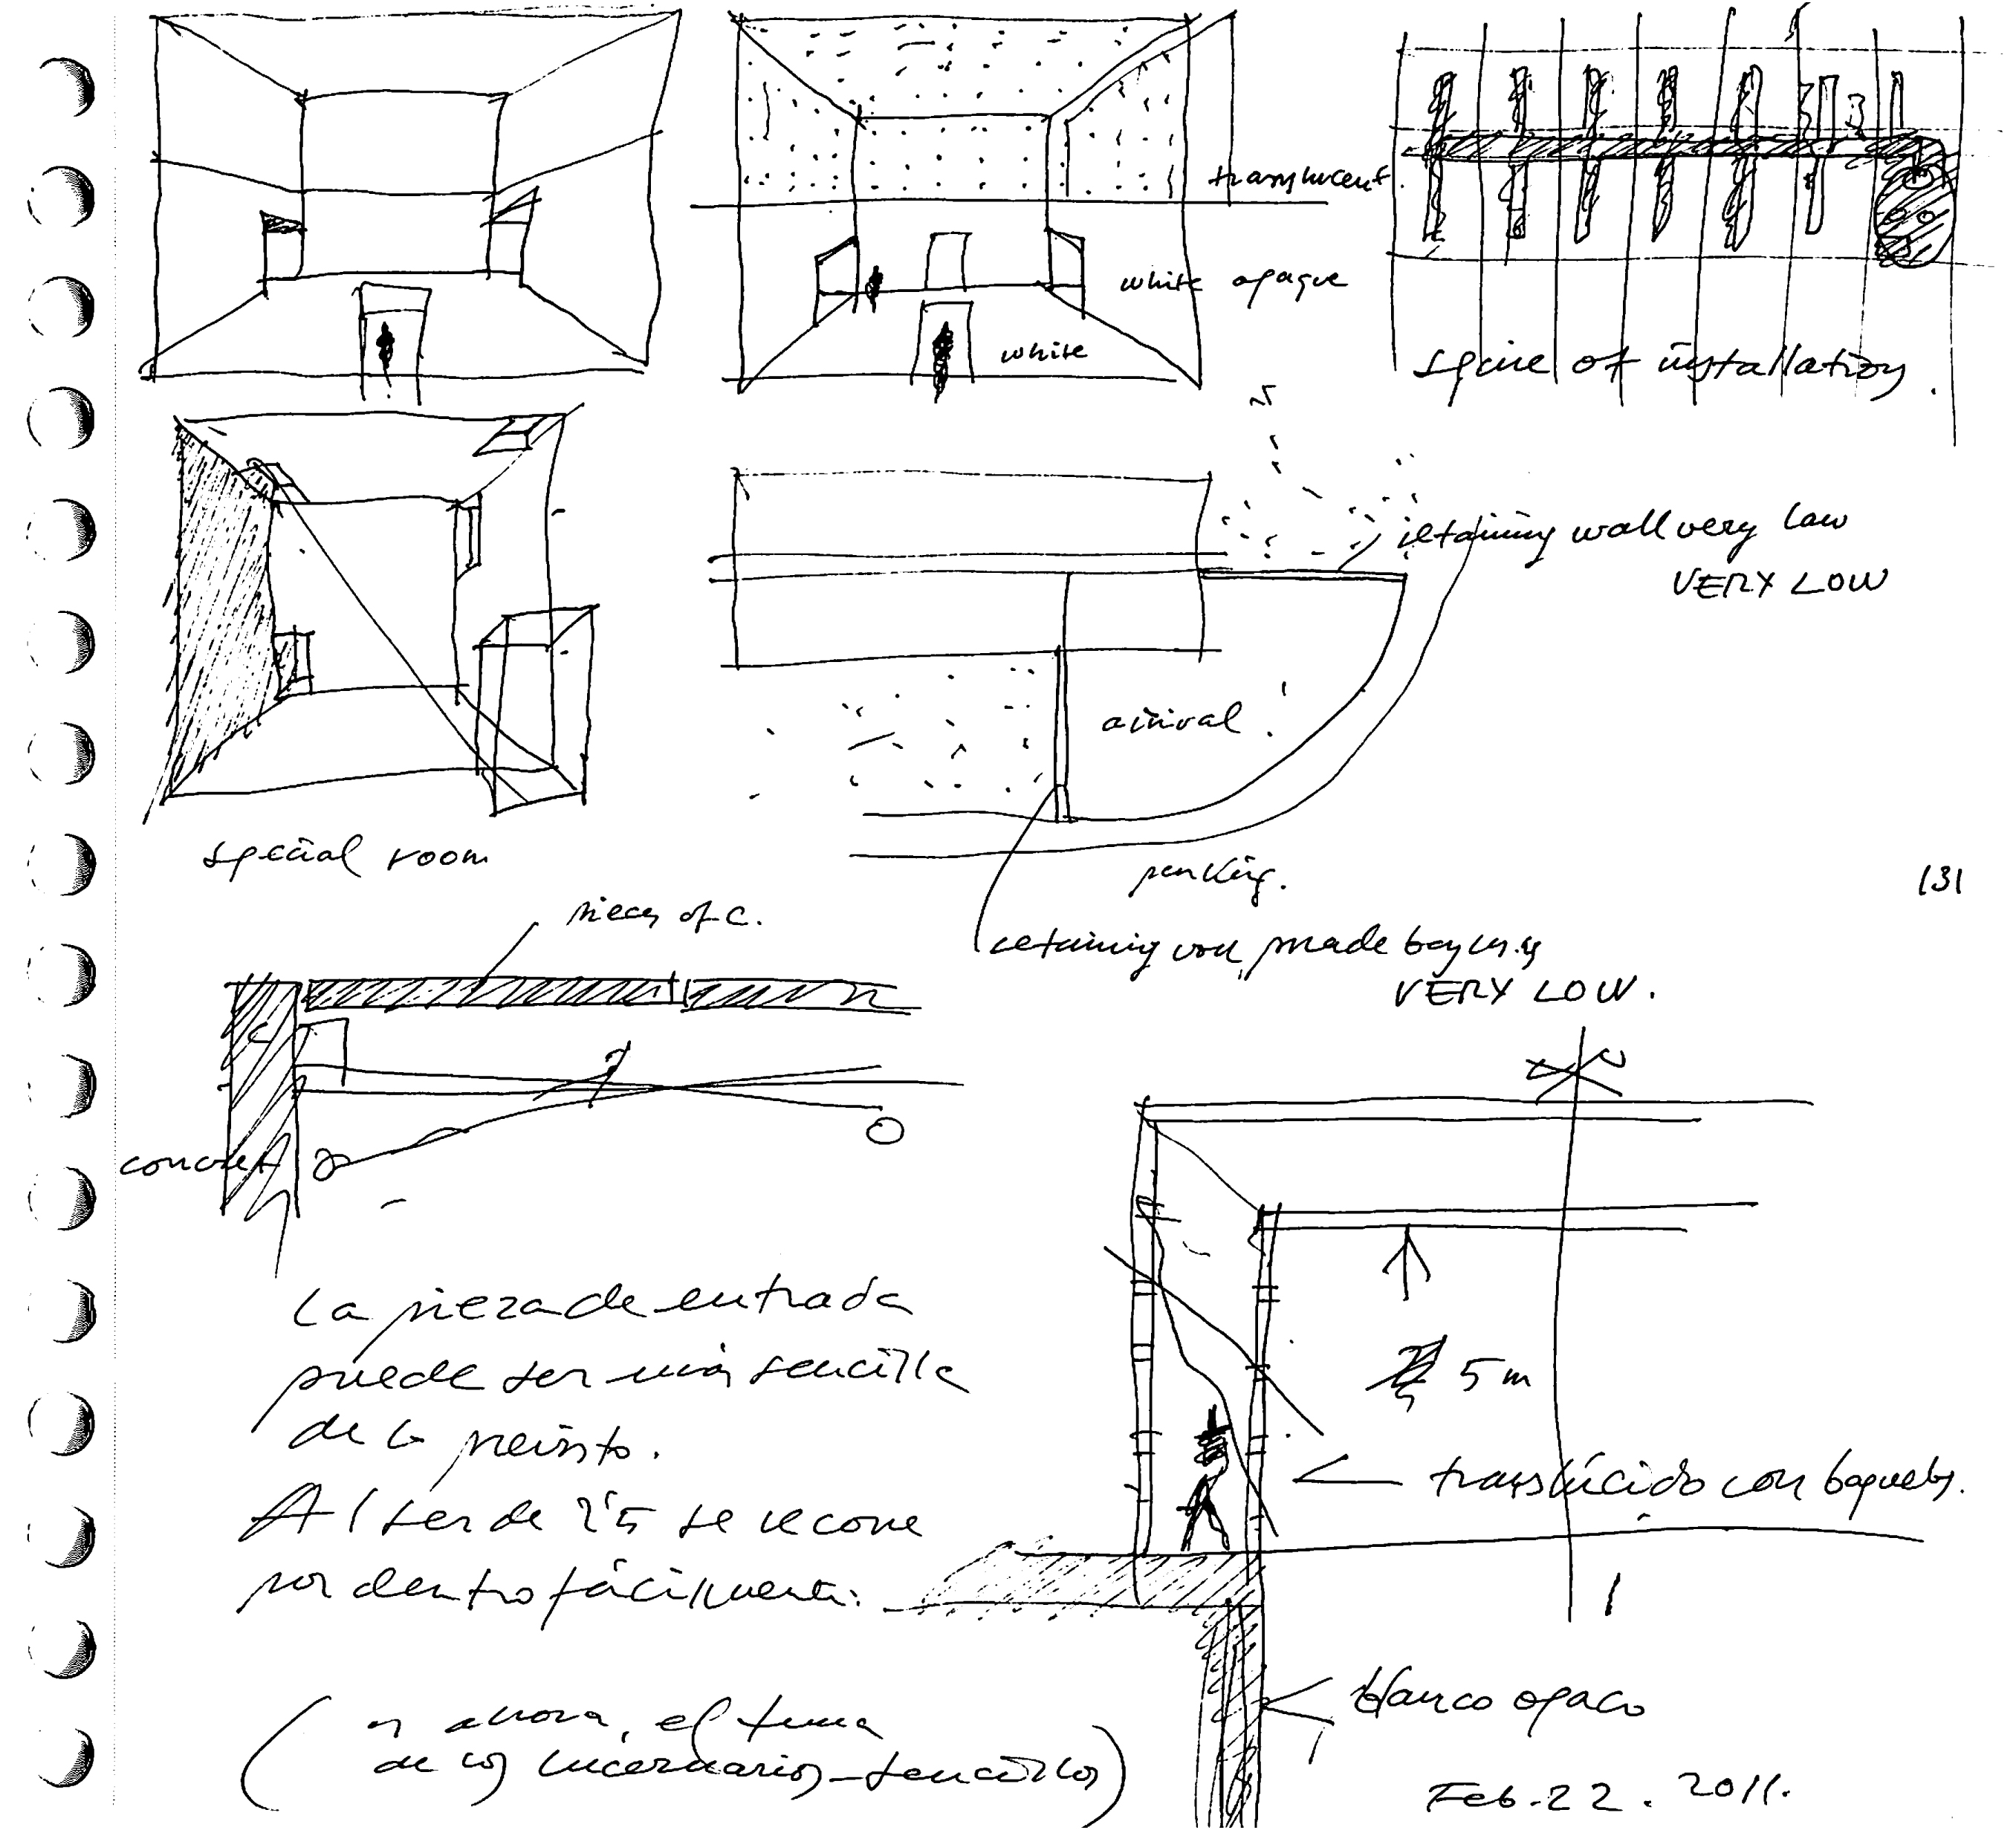 translucent.
white opaque
white
spine of installation.
retaining wall very low
VERY LOW
arrival
special room
parking.
131
pieces of C.
retaining wall, made by
VERY LOW.
C
concret
La pieza de entrada
puede ser más sencilla
de lo previsto.
Al ser de 2'5 se recorre
por dentro fácilmente.
5 m
translúcido con baquetas.
(y ahora, el tema
de los lucernarios sencillos)
blanco opaco
Feb. 22. 2011.